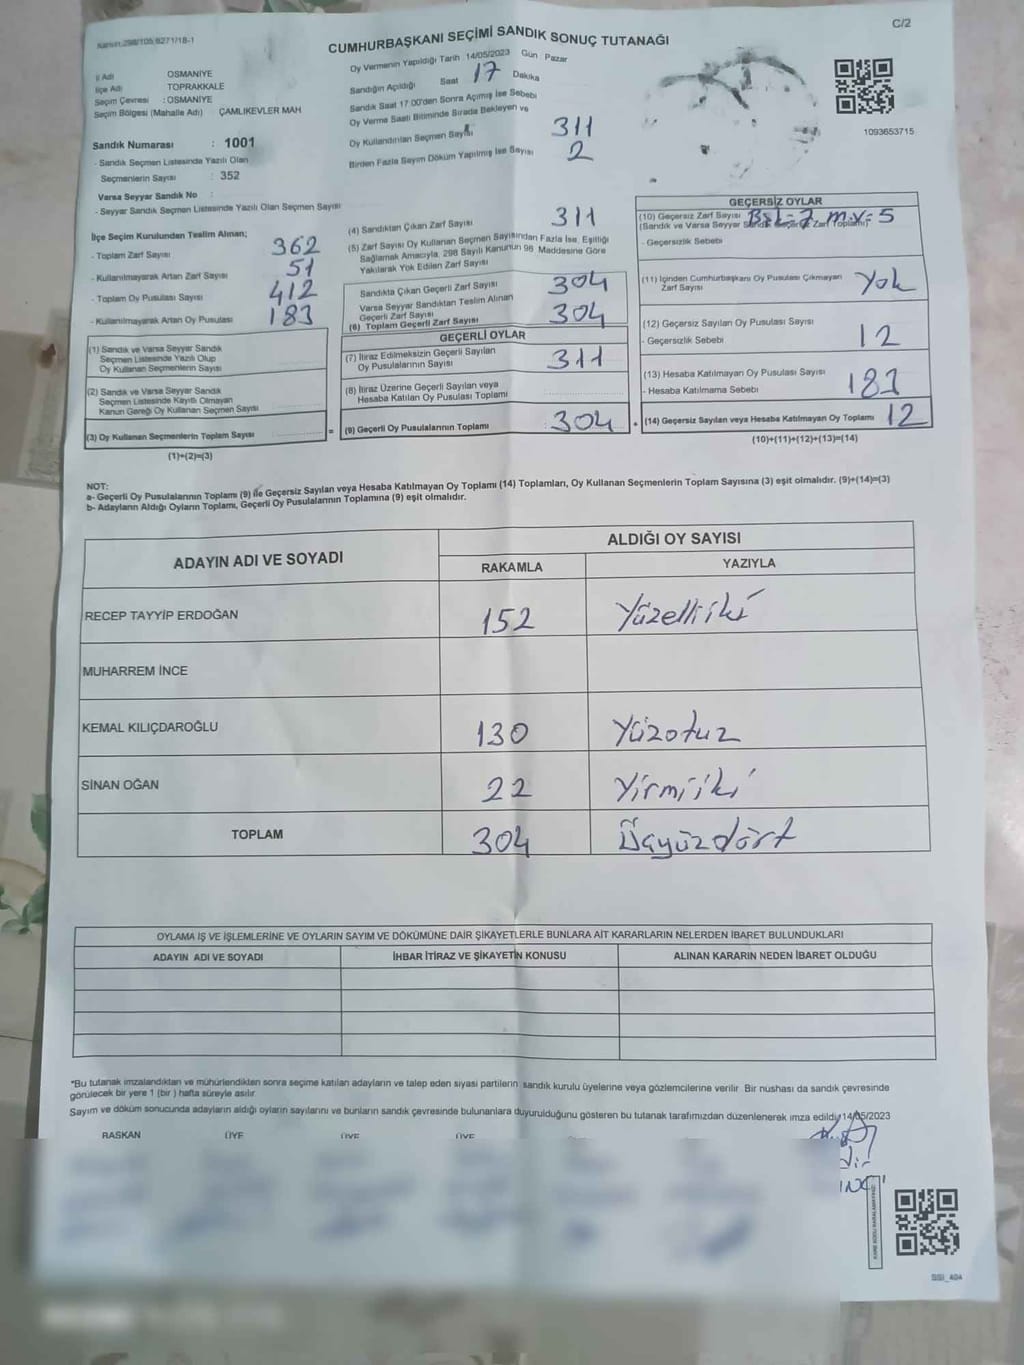 Kanun:298/105,6271/18-1
C/2
CUMHURBAŞKANI SEÇİMİ SANDIK SONUÇ TUTANAĞI
İl Adı OSMANİYE
İlçe Adı TOPRAKKALE
Seçim Çevresi : OSMANİYE
Seçim Bölgesi (Mahalle Adı) ÇAMLIKEVLER MAH
Sandık Numarası : 1001
- Sandık Seçmen Listesinde Yazılı Olan
Seçmenlerin Sayısı : 352
Varsa Seyyar Sandık No :
- Seyyar Sandık Seçmen Listesinde Yazılı Olan Seçmen Sayısı
Oy Vermenin Yapıldığı Tarih 14/05/2023 Gün Pazar
Sandığın Açıldığı Saat 17 Dakika
Sandık Saat 17.00'den Sonra Açımış İse Sebebi
Oy Verme Saati Bitiminde Sırada Bekleyen ve
Oy Kullandırılan Seçmen Sayısı 311
Birden Fazla Sayım Döküm Yapılmış İse Sayısı 2
1093653715
İlçe Seçim Kurulundan Teslim Alınan;
- Toplam Zarf Sayısı 362
- Kullanılmayarak Artan Zarf Sayısı 51
- Toplam Oy Pusulası Sayısı 412
- Kullanılmayarak Artan Oy Pusulası 183
(1) Sandık ve Varsa Seyyar Sandık
Seçmen Listesinde Yazılı Olup
Oy Kullanan Seçmenlerin Sayısı
(2) Sandık ve Varsa Seyyar Sandık
Seçmen Listesinde Kayıtlı Olmayan
Kanun Gereği Oy Kullanan Seçmen Sayısı
(3) Oy Kullanan Seçmenlerin Toplam Sayısı
(1)+(2)=(3)
(4) Sandıktan Çıkan Zarf Sayısı 311
(5) Zarf Sayısı Oy Kullanan Seçmen Sayısından Fazla İse, Eşitliği
Sağlamak Amacıyla, 298 Sayılı Kanunun 98. Maddesine Göre
Yakılarak Yok Edilen Zarf Sayısı
Sandıkta Çıkan Geçerli Zarf Sayısı 304
Varsa Seyyar Sandıktan Teslim Alınan
Geçerli Zarf Sayısı
(6) Toplam Geçerli Zarf Sayısı 304
GEÇERLİ OYLAR
(7) İtiraz Edilmeksizin Geçerli Sayılan
Oy Pusulasının Sayısı 311
(8) İtiraz Üzerine Geçerli Sayılan veya
Hesaba Katılan Oy Pusulası Toplamı
= (9) Geçerli Oy Pusulalarının Toplamı 304 +
GEÇERSİZ OYLAR
(10) Geçersiz Zarf Sayısı
(Sandık ve Varsa Seyyar Sandık Geçersiz Zarf Toplamı)
- Geçersizlik Sebebi
(11) İçinden Cumhurbaşkanı Oy Pusulası Çıkmayan
Zarf Sayısı Yok
(12) Geçersiz Sayılan Oy Pusulası Sayısı
- Geçersizlik Sebebi 12
(13) Hesaba Katılmayan Oy Pusulası Sayısı
- Hesaba Katılmama Sebebi
(14) Geçersiz Sayılan veya Hesaba Katılmayan Oy Toplamı 12
(10)+(11)+(12)+(13)=(14)
NOT:
a- Geçerli Oy Pusulalarının Toplamı (9) ile Geçersiz Sayılan veya Hesaba Katılmayan Oy Toplamı (14) Toplamları, Oy Kullanan Seçmenlerin Toplam Sayısına (3) eşit olmalıdır. (9)+(14)=(3)
b- Adayların Aldığı Oyların Toplamı, Geçerli Oy Pusulalarının Toplamına (9) eşit olmalıdır.
ADAYIN ADI VE SOYADI
ALDIĞI OY SAYISI
RAKAMLA YAZIYLA
RECEP TAYYİP ERDOĞAN 152 Yüzelliiki
MUHARREM İNCE
KEMAL KILIÇDAROĞLU 130 Yüzotuz
SİNAN OĞAN 22 Yirmiiki
TOPLAM 304 Üçyüzdört
OYLAMA İŞ VE İŞLEMLERİNE VE OYLARIN SAYIM VE DÖKÜMÜNE DAİR ŞİKAYETLERLE BUNLARA AİT KARARLARIN NELERDEN İBARET BULUNDUKLARI
ADAYIN ADI VE SOYADI İHBAR İTİRAZ VE ŞİKAYETİN KONUSU ALINAN KARARIN NEDEN İBARET OLDUĞU
*Bu tutanak imzalandıktan ve mühürlendikten sonra seçime katılan adayların ve talep eden siyasi partilerin sandık kurulu üyelerine veya gözlemcilerine verilir. Bir nüshası da sandık çevresinde
görülecek bir yere 1 (bir) hafta süreyle asılır.
Sayım ve döküm sonucunda adayların aldığı oyların sayılarını ve bunların sandık çevresinde bulunanlara duyurulduğunu gösteren bu tutanak tarafımızdan düzenlenerek imza edildi. 14/05/2023
BAŞKAN ÜYE ÜYE ÜYE